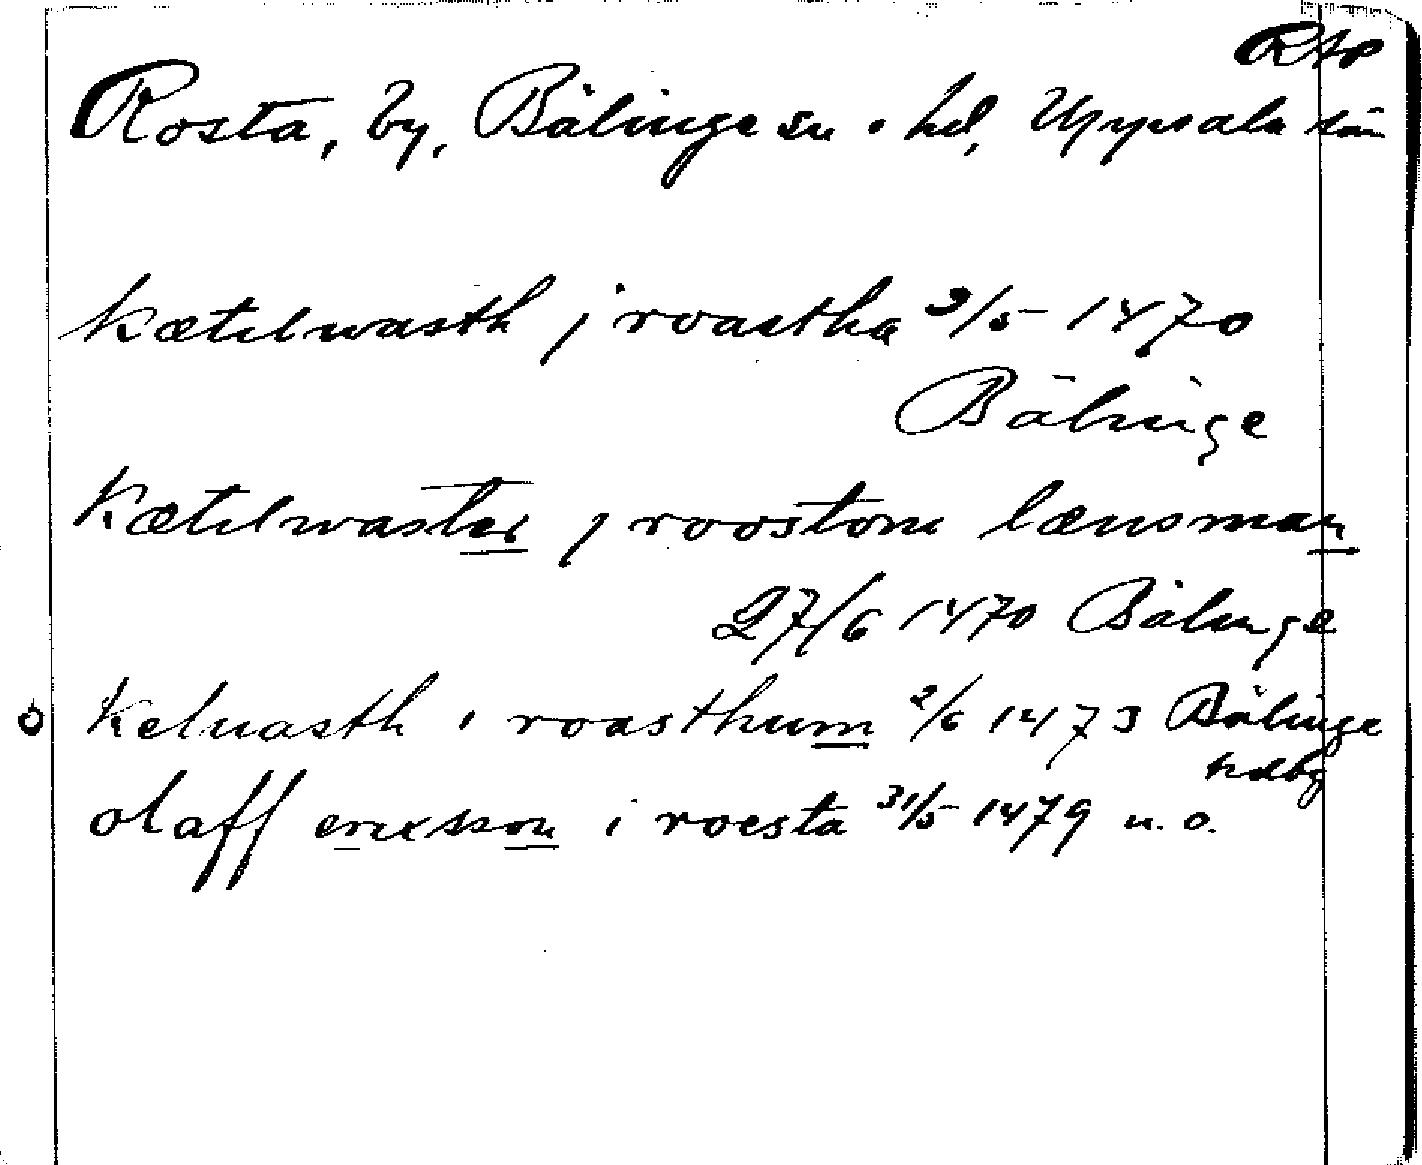 RAP
Rosta, by, Bälinge sn o. hd, Uppsala län
kætilwasth j roastha 2/5 1470
Bälinge
Kætilwaster j roostom lænsman
27/6 1470 Bälinge
Keluasth i roasthum 2/6 1473 Bälinge
hdbg
olaff erixsson i roesta 31/5 1479 u. o.